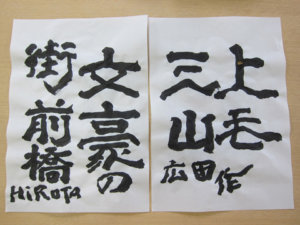 上毛
三山
広田作
女豪の
街前橋
HiROTA